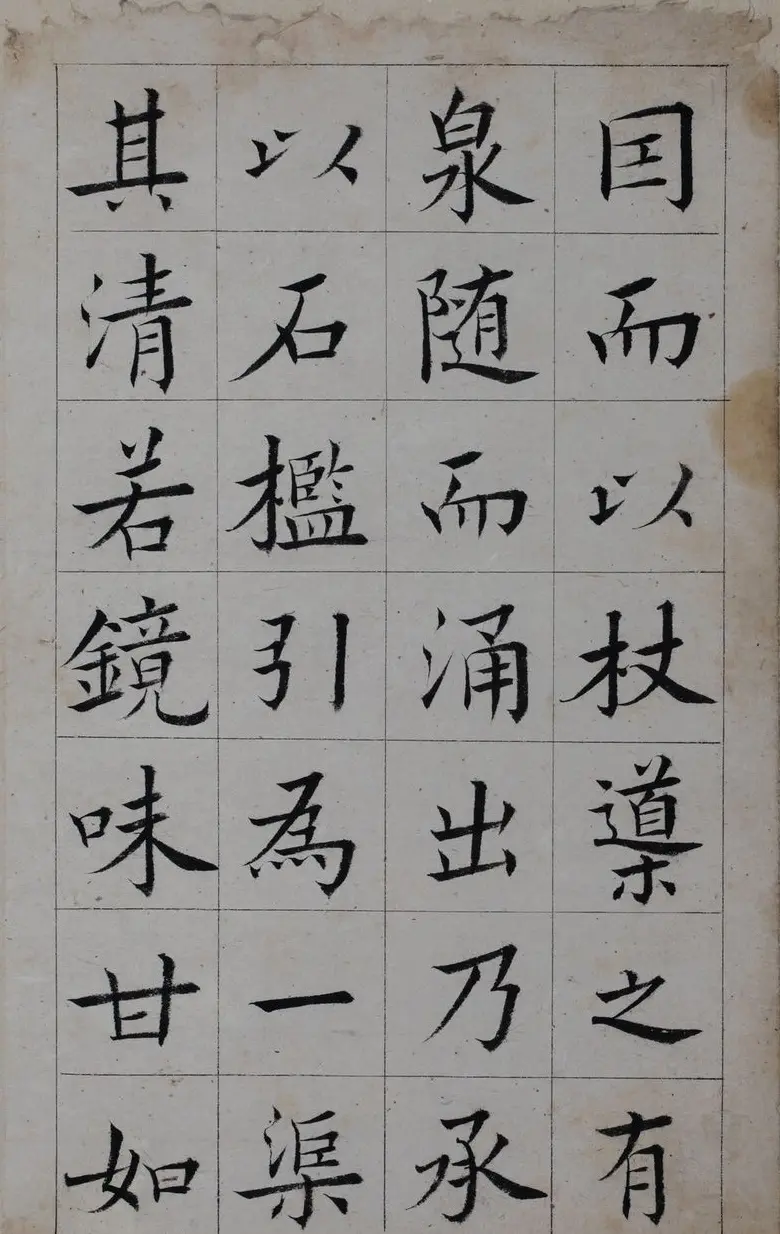 囙而以杖導之有
泉随而涌出乃承
以石檻引為一渠
其清若鏡味甘如